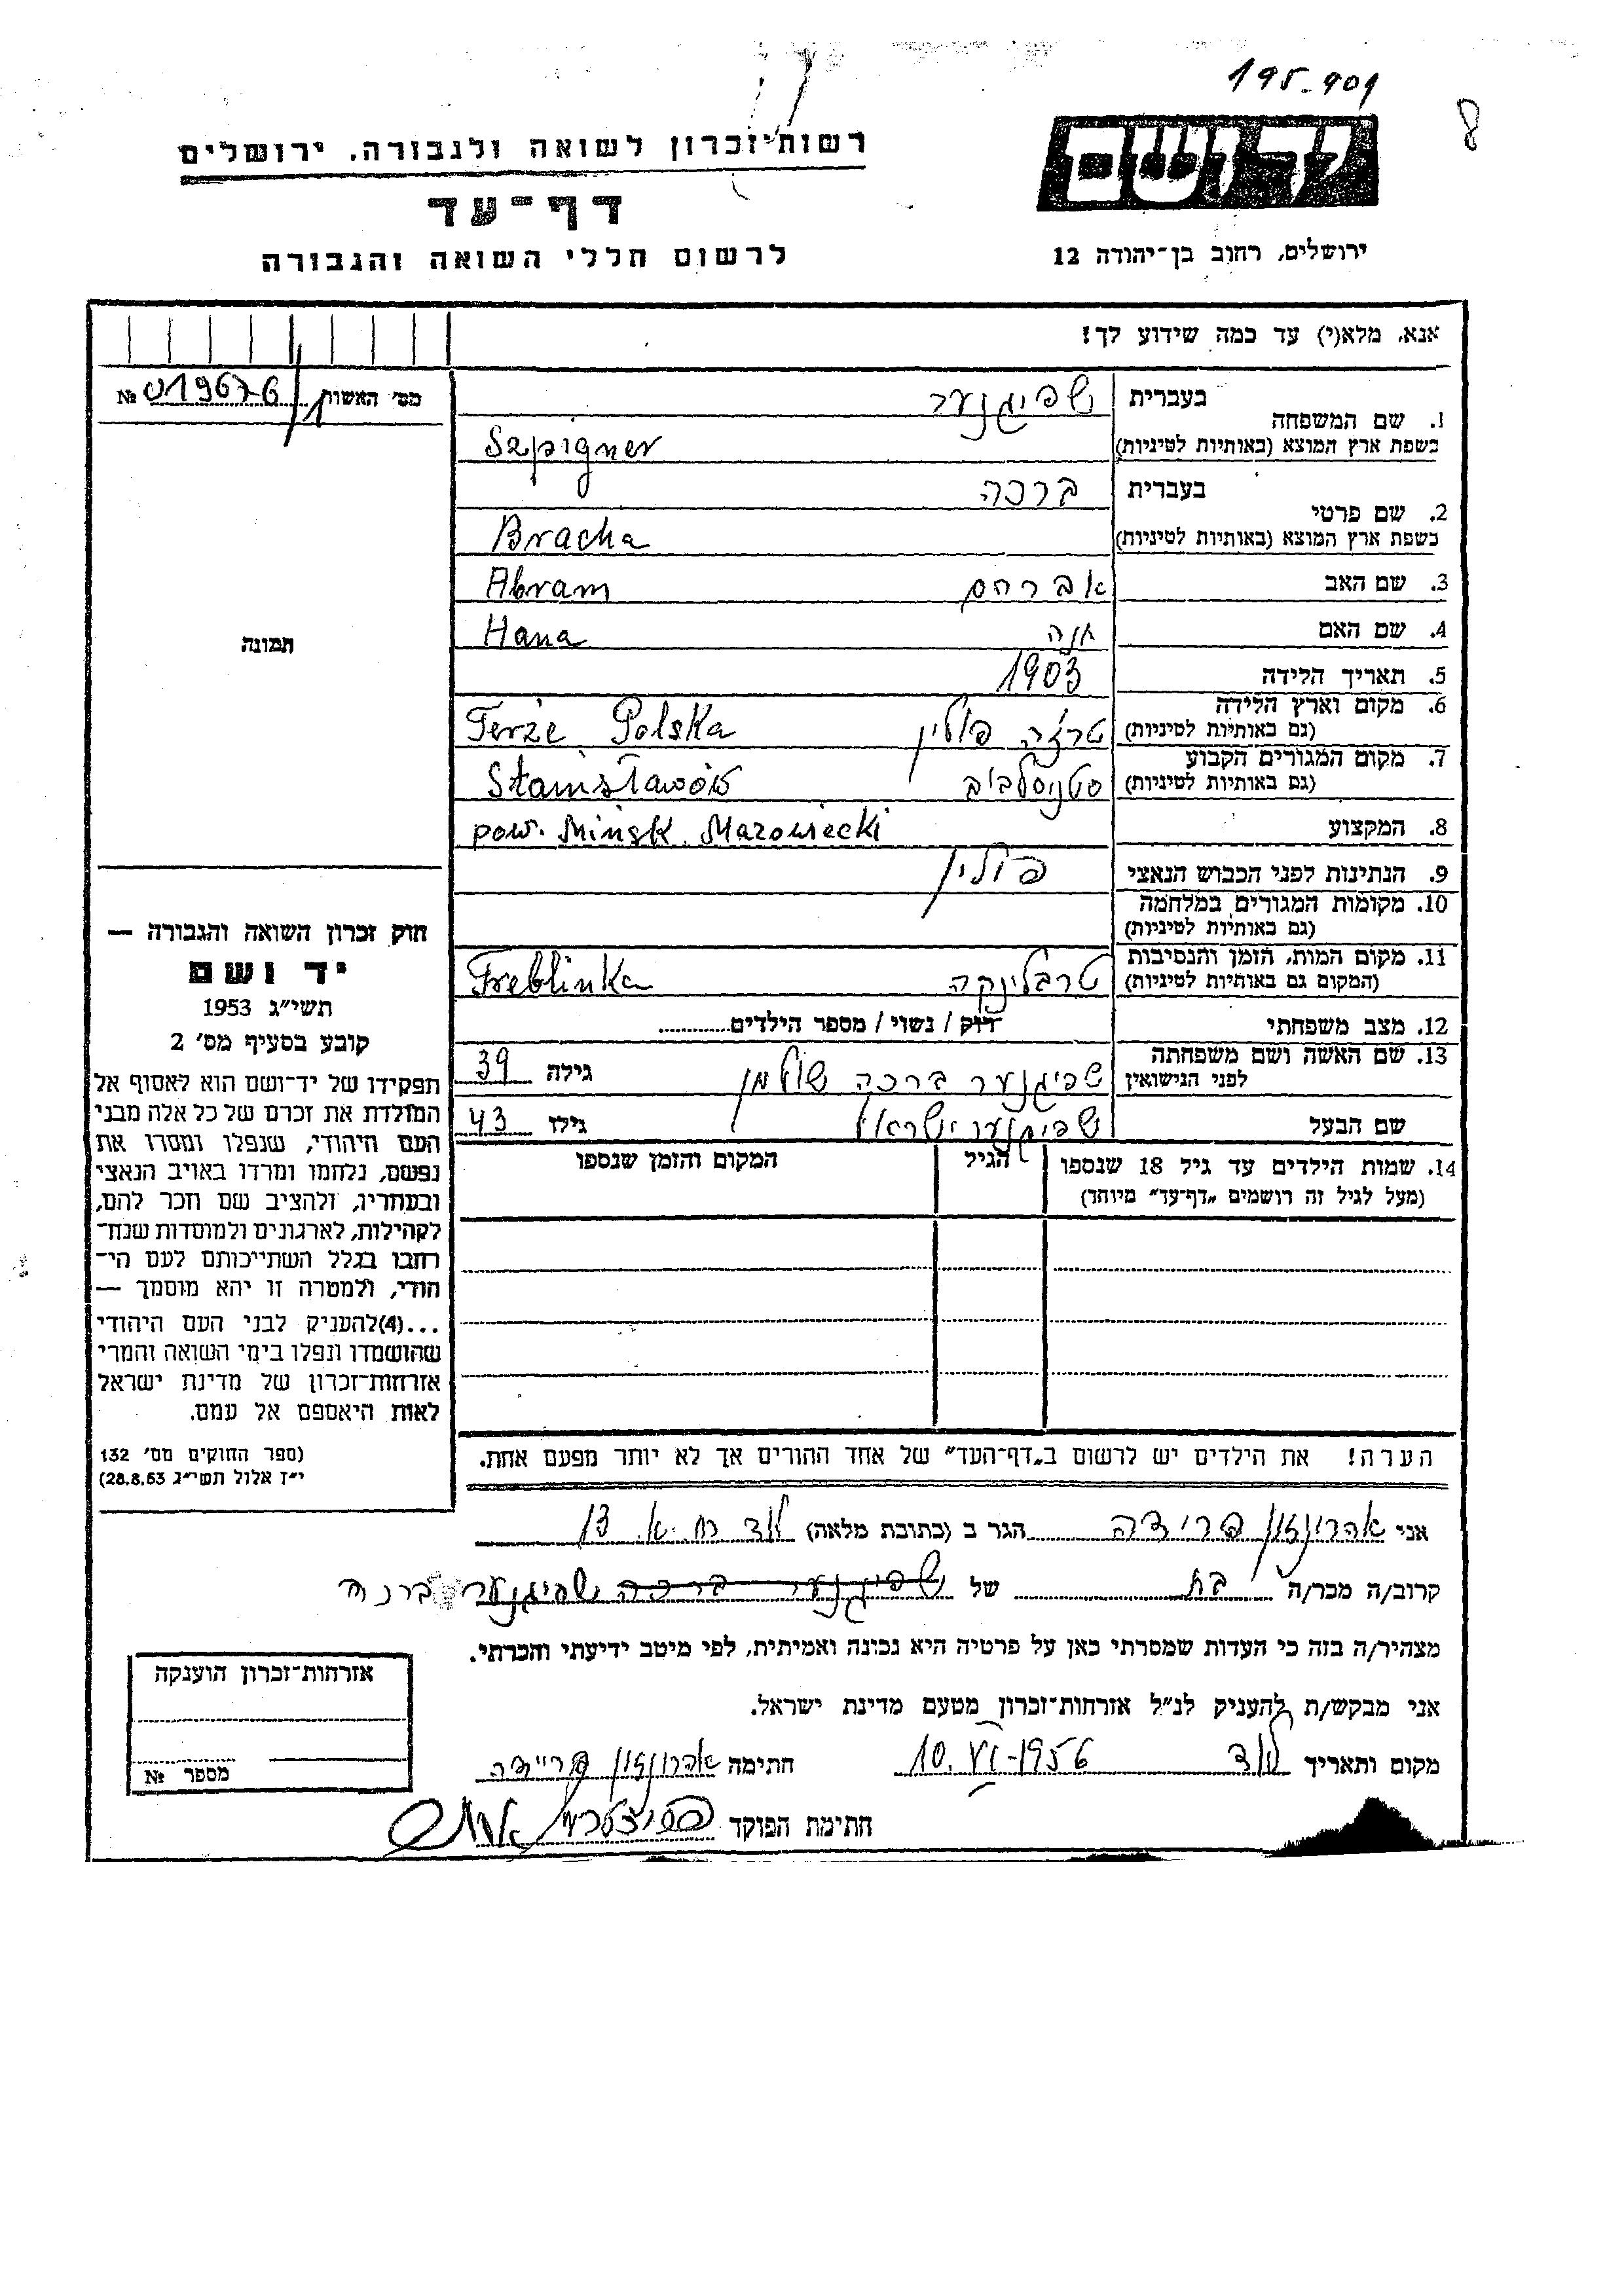 195-901
8
יד ושם
ירושלים, רחוב בן־יהודה 12
רשות־זכרון לשואה ולגבורה. ירושלים
דף־עד
לרשום חללי השואה והגבורה
אנא, מלא(י) עד כמה שידוע לך!
1. שם המשפחה בעברית שפיגנער
בשפת ארץ המוצא (באותיות לטיניות) Szpigner
2. שם פרטי בעברית ברכה
בשפת ארץ המוצא (באותיות לטיניות) Bracha
3. שם האב אברהם Abram
4. שם האם חנה Hana
5. תאריך הלידה 1903
6. מקום וארץ הלידה (גם באותיות לטיניות) טרזה פולין Terże Polska
7. מקום המגורים הקבוע (גם באותיות לטיניות) סטניסלבוב Stanisławów
8. המקצוע pow. Mińsk. Mazowiecki
9. הנתינות לפני הכבוש הנאצי פולין
10. מקומות המגורים במלחמה (גם באותיות לטיניות)
11. מקום המות, הזמן והנסיבות (המקום גם באותיות לטיניות) טרבלינקה Treblinka
12. מצב משפחתי רוק / נשוי / מספר הילדים
13. שם האשה ושם משפחתה לפני הנישואין שפיגנער ברכה שולמן גילה 39
שם הבעל שפיגנער ישראל גילו 43
14. שמות הילדים עד גיל 18 שנספו (מעל לגיל זה רושמים „דף־עד" מיוחד)
הגיל
המקום והזמן שנספו
הערה! את הילדים יש לרשום ב„דף־העד" של אחד ההורים אך לא יותר מפעם אחת.
מס׳ האשות № 019676/1
תמונה
חוק זכרון השואה והגבורה —
יד ושם
תשי״ג 1953
קובע בסעיף מס׳ 2
תפקידו של יד־ושם הוא לאסוף אל
המולדת את זכרם של כל אלה מבני
העם היהודי, שנפלו ומסרו את
נפשם, נלחמו ומרדו באויב הנאצי
ובעוזריו, ולהציב שם וזכר להם,
לקהילות, לארגונים ולמוסדות שנח־
רבו בגלל השתייכותם לעם הי־
הודי, ולמטרה זו יהא מוסמך —
...(4)להעניק לבני העם היהודי
שהושמדו ונפלו בימי השואה והמרי
אזרחות־זכרון של מדינת ישראל
לאות היאספם אל עמם.
(ספר החוקים מס׳ 132
י״ז אלול תשי״ג 28.8.53)
אני אהרונזון פרידה הגר ב (כתובת מלאה) לוד רח. א. 13
קרוב/ה מכר/ה בת של שפיגנער ברכה שפיגנער ברכה
מצהיר/ה בזה כי העדות שמסרתי כאן על פרטיה היא נכונה ואמיתית, לפי מיטב ידיעתי והכרתי.
אני מבקש/ת להעניק לנ״ל אזרחות־זכרון מטעם מדינת ישראל.
מקום ותאריך לוד 10.VI-1956 חתימה אהרונזון פריידה
חתימת הפוקד
אזרחות־זכרון הוענקה
מספר №